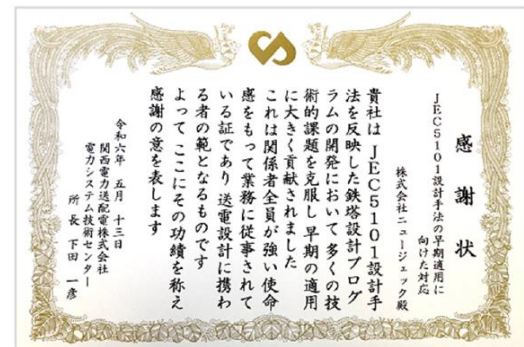 感謝状
JEC5101設計手法の早期適用に
向けた対応
株式会社ニュージェック殿
貴社は JEC5101設計手
法を反映した鉄塔設計プログ
ラムの開発において多くの技
術的課題を克服し 早期の適用
に大きく貢献されました
これは関係者全員が強い使命
感をもって業務に従事されて
いる証であり 送電設計に携わ
る者の範となるものです
よって ここにその功績を称え
感謝の意を表します
令和六年 五月 十三日
関西電力送配電株式会社
電力システム技術センター
所長 下田 一彦